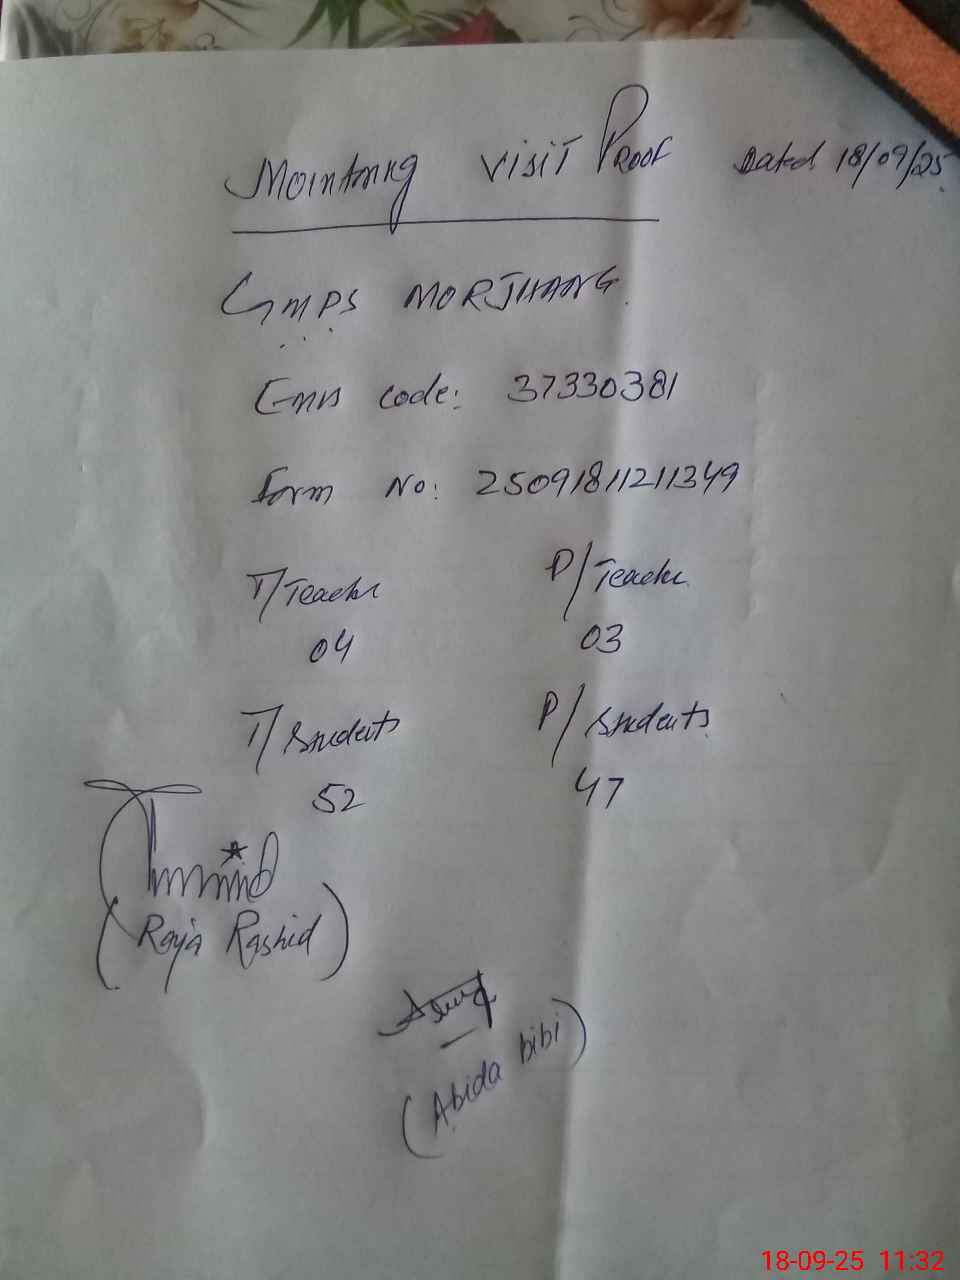 Mointnring Visit Proof Dated 18/09/25
GMPS MORJHANG.
Emis code: 37330381
Form No: 2509181121 1349
T/Teacher P/Teacher
04 03
T/Students P/Students
52 47
(Raja Rashid)
(Abida bibi)
18-09-25 11:32